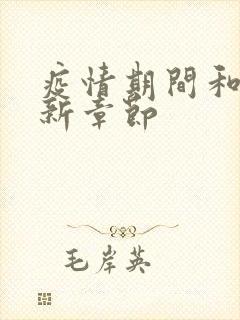 疫情期間和
新章節
毛岸英